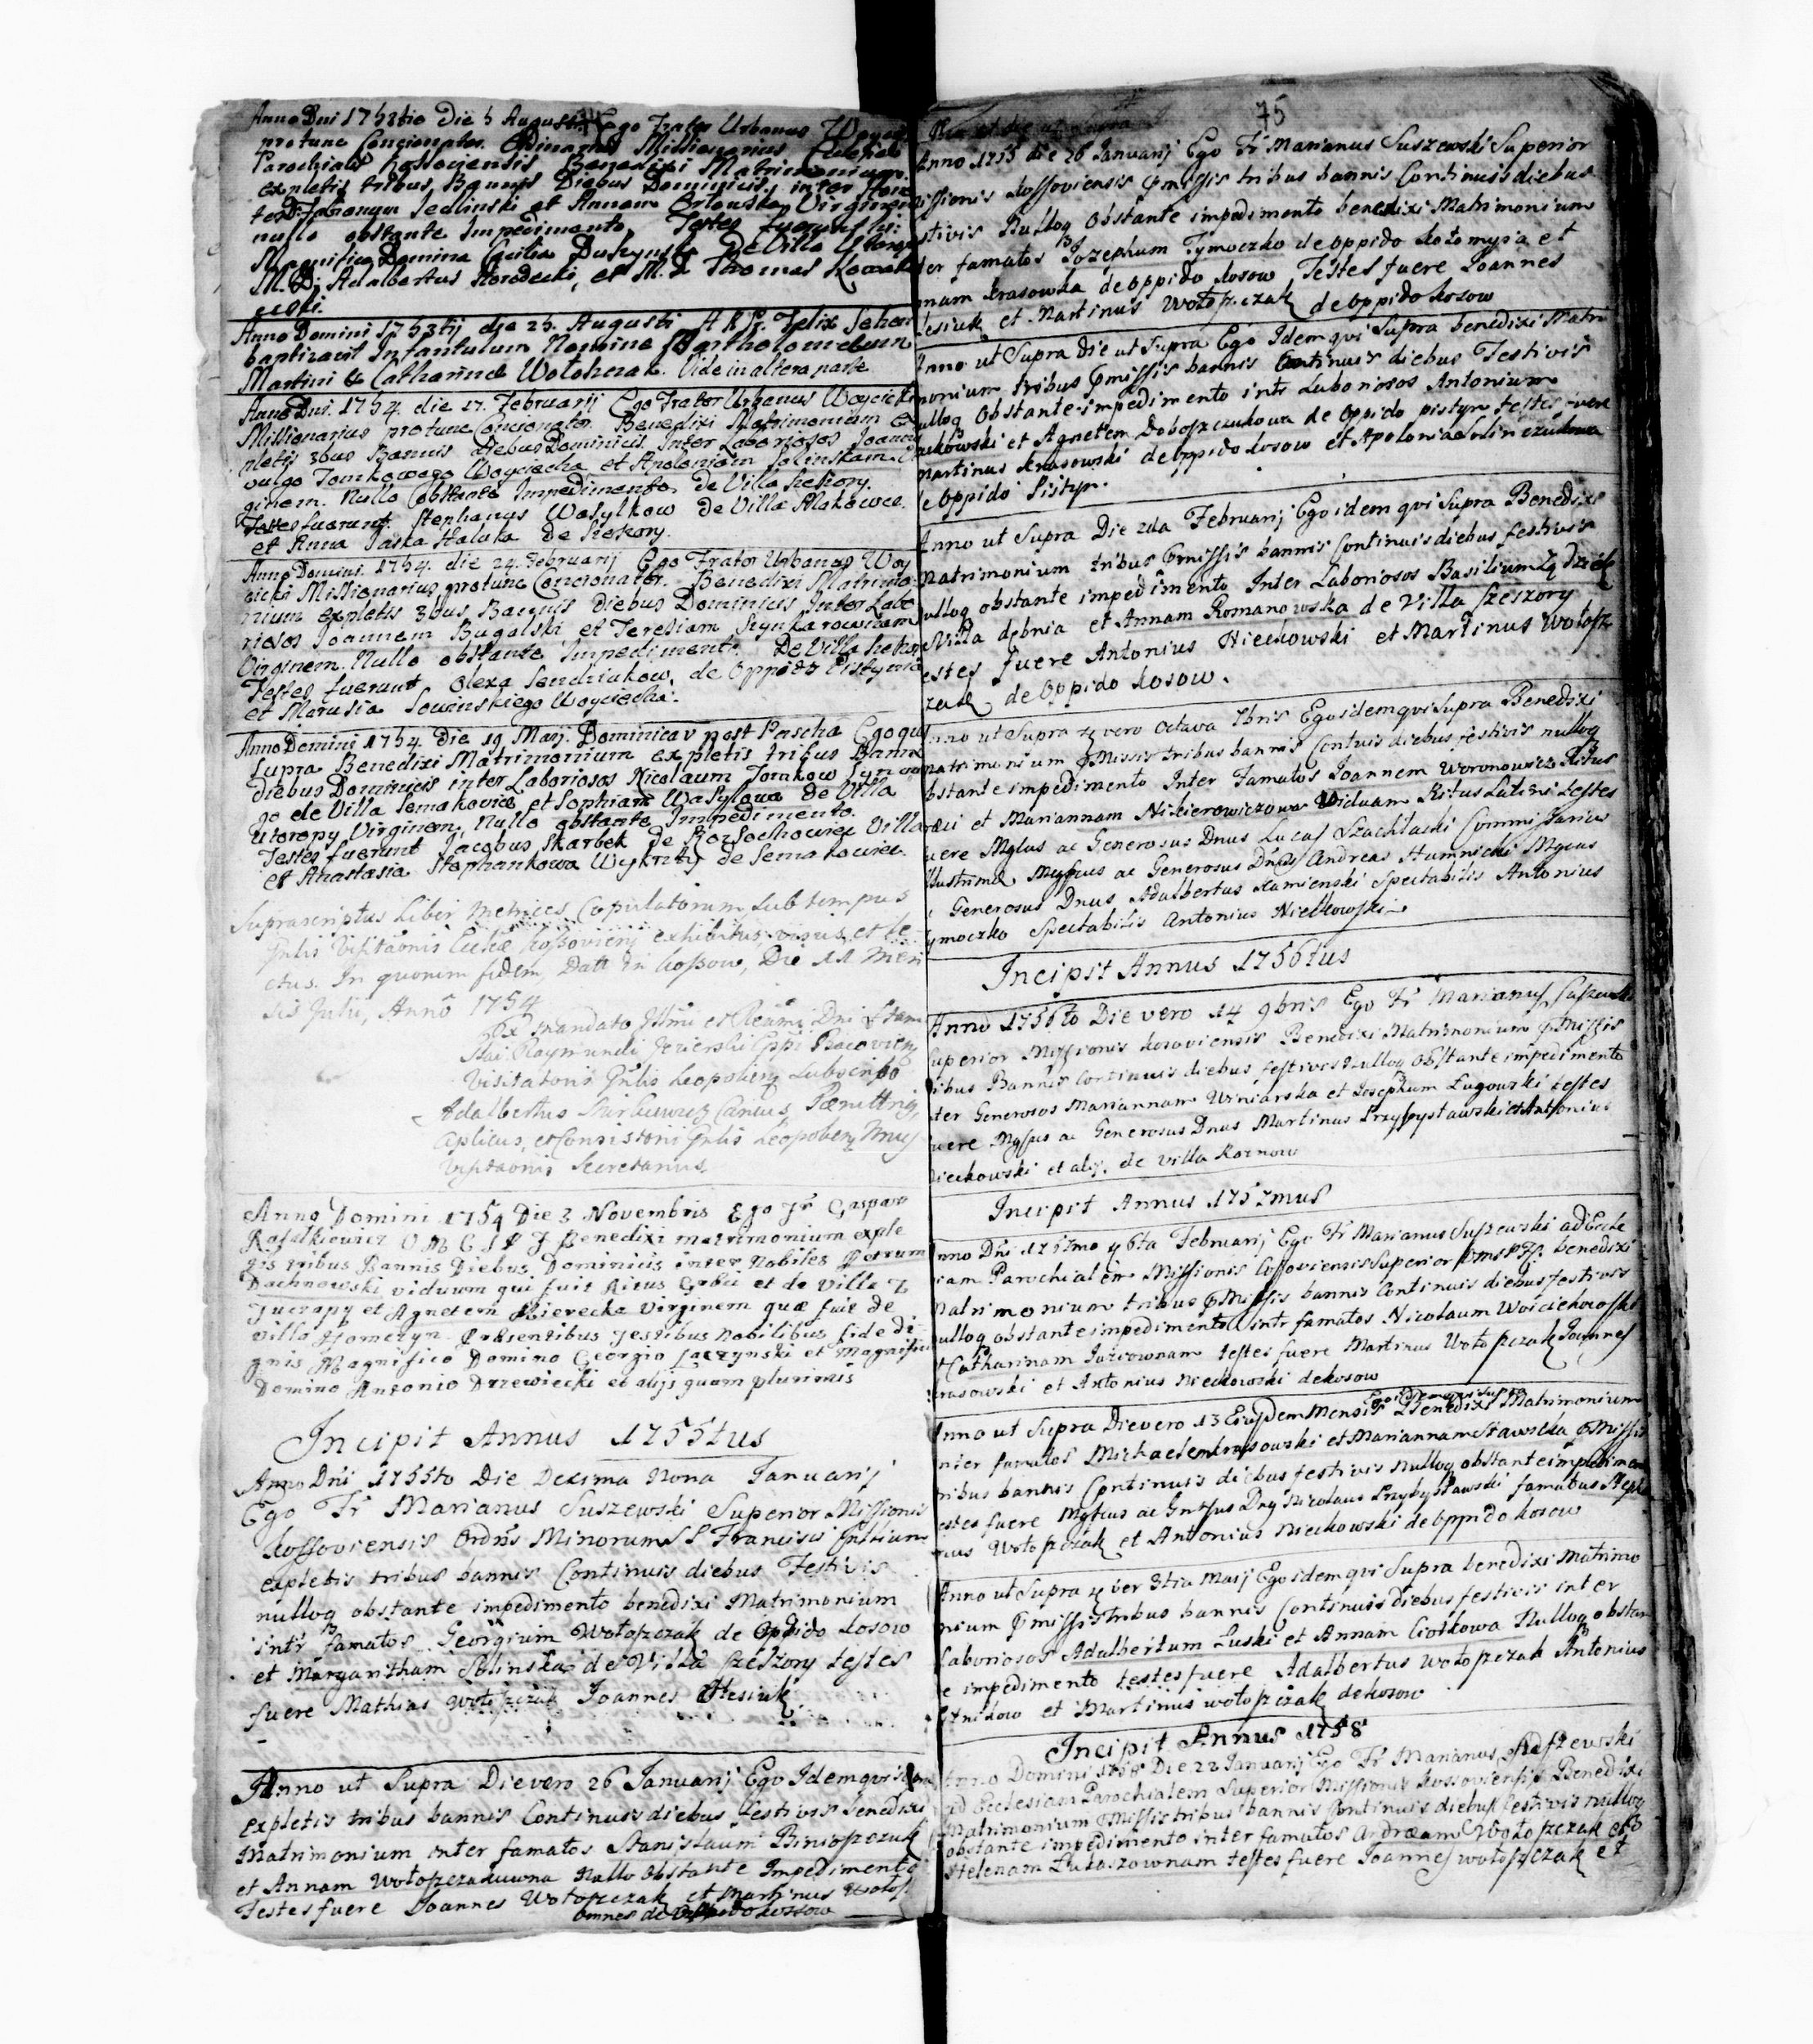 Anno Dni 1753tio Die 5 Augusti Ego Frater Urbanus
protunc Concionator Ordinarius Missionarius
Parochialis Kossoviensis Benedixi Matrimonium
expletis tribus Bannis Diebus Dominicis, inter
Jedlinski et Annam Orlouska Virginem
nullo obstante Impedimento, Testes fuerunt
Magnifica Domina Cecilia De Villa
M. D. Adalbertus et M. D. Thomas
Anno Domini 1753tij die 25. Augusti A R P. Felix
baptizavit Infantulum Nomine Bartholomeum
Martini & Catharinæ Wołoszczak. Vide in altera parte
Anno Dni. 1754. die 17. Februarij Ego Frater Urbanus Woycicki
Missionarius protunc Concionator. Benedixi Matrimonium
pletis 3bus Bannis diebus Dominicis Inter Laboriosos Joannem
vulgo Tomkowego Woyciecha et Apoloniam Solinskam
ginem. Nullo Obstante Impedimento. de Villa
Testes fuerunt. Stephanus Wasylkow de Villa
et Anna
Anno Domini. 1754. die 24. Februarij Ego Frater Urbanus Woy
cicki Missionarius protunc Concionator. Benedixi Matrimo
nium expletis 3bus Bannis diebus Dominicis Inter Labo
riosos Joannem Bugalski et Teresiam
Virginem. Nullo obstante Impedimento. De Villa
Testes fuerunt Olexa de Oppido Pistynia
et Marusia Woyciecha.
Anno Domini 1754. die 19 Maij. Dominica V post Pascha Ego qui
Supra Benedixi Matrimonium expletis tribus Bannis
diebus Dominicis inter Laboriosos Nicolaum Tomkow
go de Villa Semakowic et Sophiam Wasylowa de Villa
Utoropy Virginem, Nullo obstante Impedimento.
Testes fuerunt Jacobus Skarbek de Villa
et Anastasia Stephankowa de Semakowiec.
Suprascriptus Liber Metrices Copulatorum, sub tempus
Gnlis Visitaonis Ecclæ Kossovien exhibitus, visus, et le
ctus. In quorum fidem, Datt in Kossow, Die 11 Men
sis Julii, Anno 1754
Ex mandato Illmi et Rdmi Dni Stani
slai Raymundi Jezierski Eppi
Visitatoris Gnlis Leopolien Subscripsi
Adalbertus
Aplicus, et Consistorii Gnlis Leopolien
Visitaonis Secretarius
Anno Domini 1754 Die 3 Novembris Ego Fr Gaspar
Rafalkiewicz O M C S P F Benedixi matrimonium exple
tis tribus Bannis Diebus Dominicis inter Nobiles Petrum
Dachnowski viduum qui fuit Ritus Græci et de Villa
et Agnetem Virginem quæ fuit de
villa Præsentibus Testibus Nobilibus fide di
gnis Magnifico Domino Georgio et Magnifico
Domino Antonio Drzewiecki et alijs quam plurimis
Incipit Annus 1755tus
Anno Dni 1755to Die Decima Nona Januarij
Ego Fr Marianus Suszewski Superior Missionis
Kossoviensis Ordnis Minorum S P Francisci
expletis tribus bannis Continuis diebus Festivis
nulloq obstante impedimento benedixi Matrimonium
intr famatos Georgium Wołoszczak de Oppido Kosow
et Margaritham Solinska de Villa Szeszory testes
fuere Mathias Wołoszczak Joannes Olesiuk
Anno ut Supra Die vero 26 Januarij Ego Idem qui Supra
expletis tribus bannis Continuis diebus festivis benedixi
Matrimonium inter famatos Stanislaum Biniaszczuk
et Annam Wołoszczakuwna Nullo obstante Impedimento
Testes fuere Joannes Wołoszczak et Martinus Wołosz
omnes de Oppido Kossow
75
Anno 1755 die 26 Januarij Ego Fr Marianus Suszewski Superior
issionis Kossoviensis pmissis tribus bannis Continuis diebus
stivis Nulloq Obstante impedimento benedixi Matrimonium
ter famatos Jozephum Tymoczko de oppido Kołomyia et
nnam Krasowka de oppido Kosow Testes fuere Joannes
lesiuk et Martinus Wołoszczak de oppido Kosow
Anno ut Supra die ut Supra Ego Idem qui Supra benedixi Matri
monium tribus pmissis bannis Continuis diebus Festivis
ulloq Obstante impedimento intr Laboriosos Antonium
et Agnetem Doboszczukowa de Oppido pistyn testes fuere
Martinus Krasowski de oppido Kosow et Apolonia
e oppido Pistyn.
Anno ut Supra Die 2da Februarij Ego idem qui Supra Benedixi
Matrimonium tribus pmissis bannis Continuis diebus festivis
ulloq obstante impedimento Inter Laboriosos Basilium
Villa debnia et Annam Romanowska de Villa Szeszory
estes fuere Antonius Nieckowski et Martinus Wołosz
zak de Oppido Kosow.
Anno ut Supra vero Octava Ego idem qui Supra Benedixi
Matrimonium pmissis tribus bannis Contuis diebus festivis nulloq
bstante impedimento Inter Famatos Joannem Woronowicz Ritus
ræci et Mariannam Nikierowiczowa Viduam Ritus Latini testes
uere Mgfus ac Generosus Dnus Lucas Szachłacki Commissarius
Mgfcus ac Generosus Dnus Andreas Humnicki Mgcus
Generosus Dnus Adalbertus Kamienski Spectabilis Antonius
ymoczko Spectabilis Antonius Nieckowski
Incipit Annus 1756tus
Anno 1756to Die vero 14 9bris Ego Fr Marianus Suszewski
uperior Missionis Kosoviensis Benedixi Matrimonium pmissis
ribus Bannis Continuis diebus festivis Nulloq obstante impedimento
ter Generosos Mariannam Winiarska et Josephum Ługowski testes
uere Mgfus ac Generosus Dnus Martinus Przybysławski et Antonius
ieckowski et alij. de villa
Incipit Annus 1757mus
Anno Dni 1757mo 6ta Februarij Ego Fr Marianus Suszewski ad Eccle
iam Parochialem Missionis Cossoviensis Superior benedixi
Matrimonium tribus pmissis bannis Continuis diebus festivis
nulloq obstante impedimento intr famatos Nicolaum Woiciechowski
et Catharinam testes fuere Martinus Wołoszczak Joannes
rasowski et Antonius Nieckowski de Kosow
Anno ut Supra Die vero 13 Eiusdem Mensis Ego idem qui supra Benedixi Matrimonium
inter famatos Michaelem Krasowski et Mariannam Sławska pmissis
tribus bannis Continuis diebus festivis Nulloq obstante impedimen
estes fuere Mgfcus ac Dnus Nicolaus Przybysławski famatus Steph
Wołoszczak et Antonius Nieckowski de oppido Kosow
Anno ut Supra ver 3tia Maij Ego idem qui Supra benedixi Matrimo
nium pmissis tribus bannis Continuis diebus festivis inter
Laboriosos Adalbertum Łuski et Annam Ciołkowa Nulloq obstan
e impedimento testes fuere Adalbertus Wołoszczak Antonius
et Martinus Wołoszczak de Kosow
Incipit Annus 1758
Anno Domini 1758 Die 22 Januarij Ego Fr Marianus Suszewski
ad Ecclesiam Parochialem Superior Missionis Kossoviensis Benedixi
Matrimonium pmissis tribus bannis Continuis diebus festivis nulloq
obstante impedimento inter famatos Andræam Wołoszczak et
Helenam Łukaszownam testes fuere Joannes Wołoszczak et